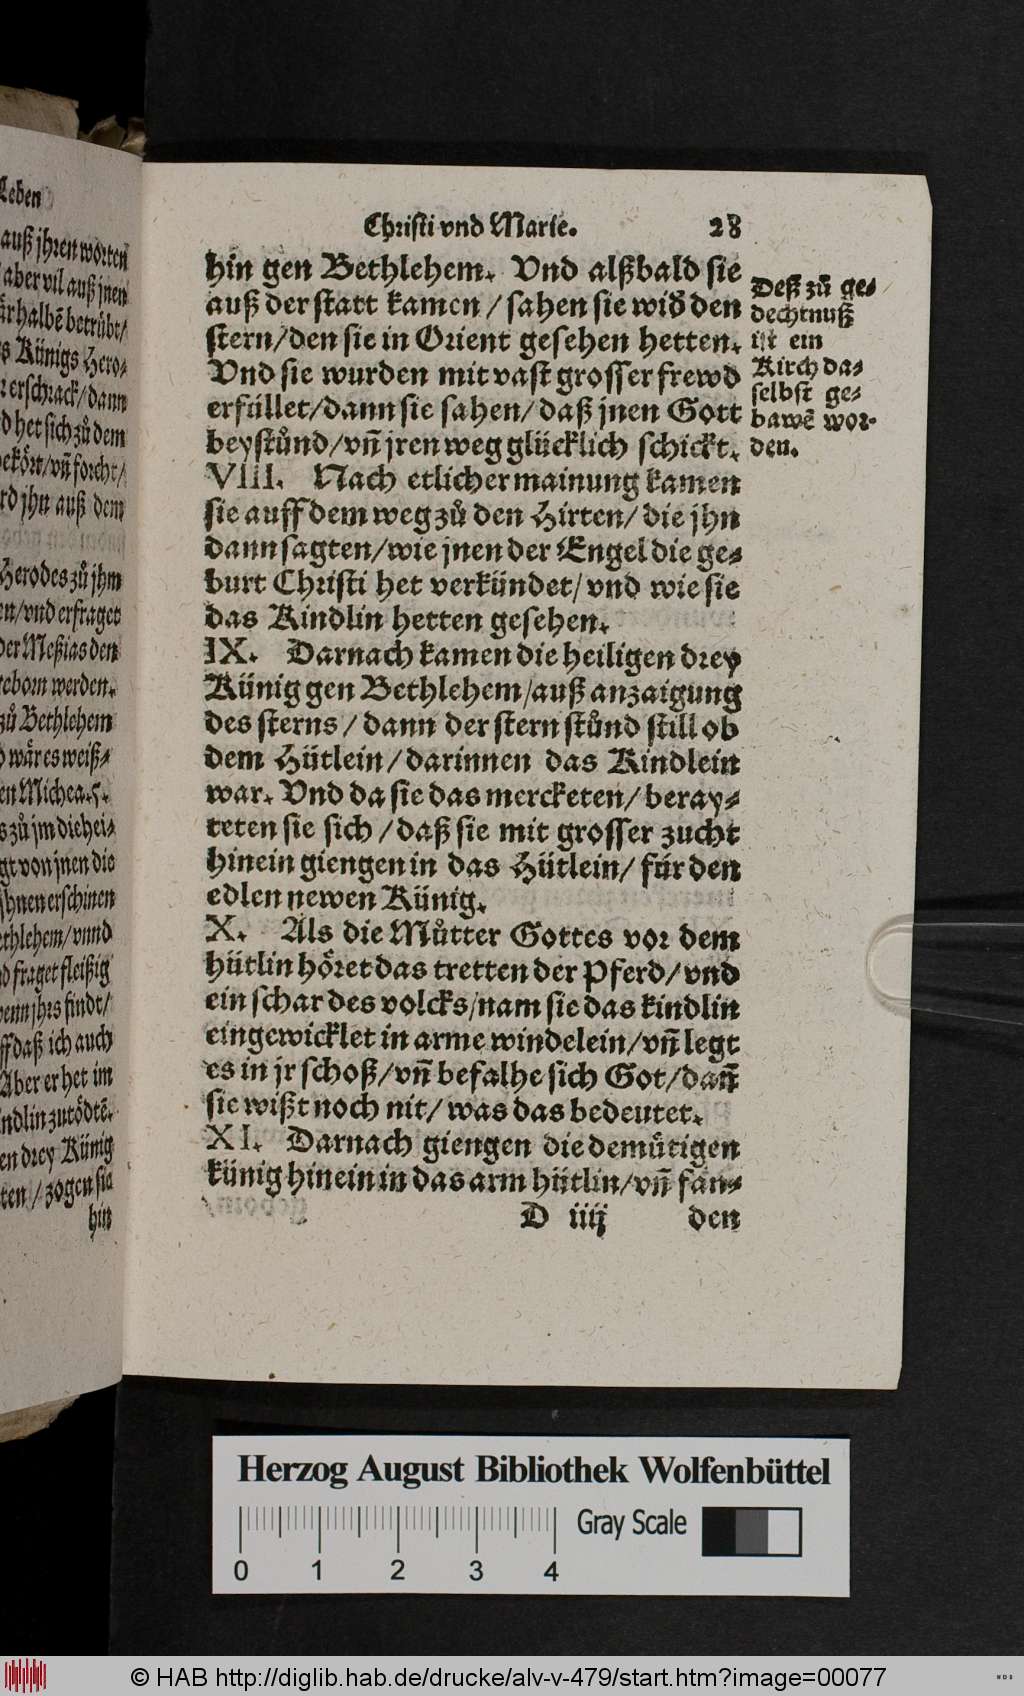 Leben
auß jhren worten
aber vil auß jnen
halbẽ betrübt/
s Künigs Hero-
erschrack/dann
d het sich zů dem
ekört/vñ forcht/
rd jhn auß dem
Herodes zů jhm
en/vnd erfraget
der Meßias den
geborn werden.
zů Bethlehem
wår es weiß-
en Michea.5.
s zů jm die hei-
gt von jnen die
jhnen erschinen
ethlehem/vnnd
d fraget fleißig
wenn jhrs findt/
ff daß ich auch
Aber er het im
indlin zutödtẽ.
en drey Künig
ten/zogen sie
hin
Christi vnd Marie. 28
hin gen Bethlehem. Vnd alßbald sie
auß der statt kamen/sahen sie wid̃ den
stern/den sie in Orient gesehen hetten.
Vnd sie wurden mit vast grosser frewd
erfüllet/dann sie sahen/daß jnen Gott
beystůnd/vñ jren weg glücklich schickt.
VIII. Nach etlicher mainung kamen
sie auff dem weg zů den Hirten/die jhn
dann sagten/wie jnen der Engel die ge-
burt Christi het verkündet/vnd wie sie
das Kindlin hetten gesehen.
IX. Darnach kamen die heiligen drey
Künig gen Bethlehem/auß anzaigung
des sterns/dann der stern stůnd still ob
dem Hütlein/darinnen das Kindlein
war. Vnd da sie das mercketen/beray-
teten sie sich/daß sie mit grosser zucht
hinein giengen in das Hütlein/für den
edlen newen Künig.
X. Als die Můtter Gottes vor dem
hütlin höret das tretten der Pferd/vnd
ein schar des volcks/nam sie das kindlin
eingewicklet in arme windelein/vñ legt
es in jr schoß/vñ befalhe sich Got/dañ
sie wißt noch nit/was das bedeutet.
XI. Darnach giengen die demůtigen
künig hinein in das arm hütlin/vñ fan-
D iiij den
Deß zů ge-
dechtnuß
ist ein
Kirch da-
selbst ge-
bawẽ wor-
den.
Herzog August Bibliothek Wolfenbüttel
Gray Scale
0 1 2 3 4
© HAB http://diglib.hab.de/drucke/alv-v-479/start.htm?image=00077